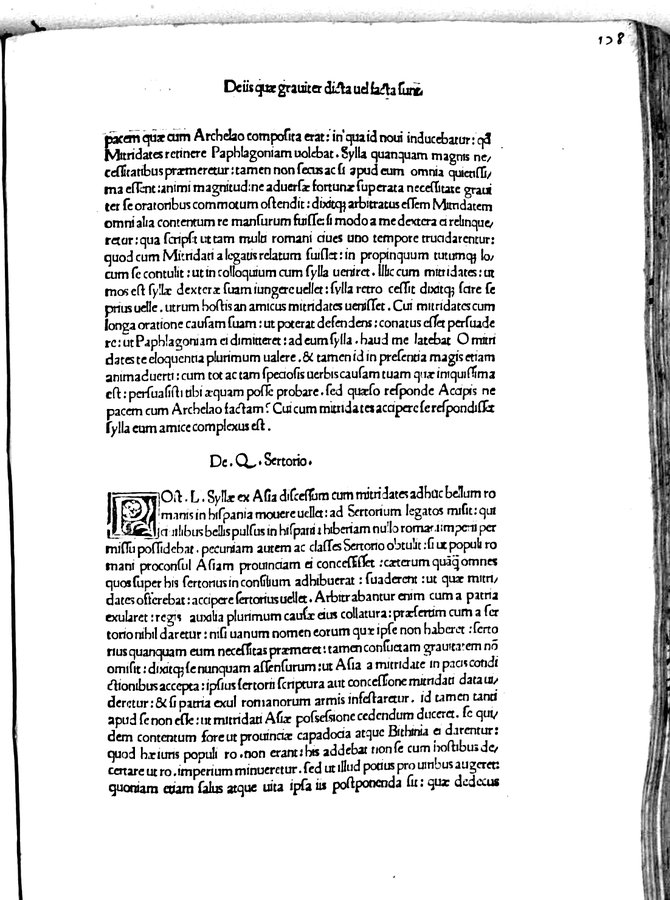 138
De iis quæ grauiter dicta uel facta sunt.
pacem quæ cum Archelao composita erat: in qua id noui inducebatur: qđ
Mitridates retinere Paphlagoniam uolebat. Sylla quanquam magnis ne/
cessitatibus præmeretur: tamen non secus ac si apud eum omnia quietissi/
ma essent: animi magnitudine aduersæ fortunæ superata necessitate graui
ter se oratoribus commotum ostendit: dixitq; arbitratus essem Mitridatem
omni alia contentum re mansurum fuisse: si modo a me dextera ei relinque/
retur: qua scripsit ut tam multi romani ciues uno tempore trucidarentur:
quod cum Mitridati a legatis relatum fuisset: in propinquum tutumq; lo/
cum se contulit: ut in colloquium cum sylla ueniret. Illic cum mitridates: ut
mos est syllæ dexteræ suam iungere uellet: sylla retro cessit dixitq; scire se
prius uelle. utrum hostis an amicus mitridates uenisset. Cui mitridates cum
longa oratione causam suam: ut poterat defendens: conatus esset persuade
re: ut Paphlagoniam ei dimitteret: ad eum sylla. haud me latebat O mitri
dates te eloquentia plurimum ualere. & tamen id in presentia magis etiam
animaduerti: cum tot ac tam speciosis uerbis causam tuam quæ iniquissima
est: persuasisti tibi æquam posse probare. sed quæso responde Accipis ne
pacem cum Archelao factam? Cui cum mitridates accipere se respondisset
sylla eum amice complexus est.
De. Q. Sertorio.
POst. L. Syllæ ex Asia discessum cum mitridates adhuc bellum ro
manis in hispania mouere uellet: ad Sertorium legatos misit: qui
ciuilibus bellis pulsus in hispania hiberiam nullo romani imperii per
missu possidebat. pecuniam autem ac classes Sertorio obtulit: si ut populi ro
mani proconsul Asiam prouinciam ei concessisset: cæterum quāq̄ omnes
quos super his sertorius in consilium adhibuerat: suaderent: ut quæ mitri/
dates offerebat: accipere sertorius uellet. Arbitrabantur enim cum a patria
exularet: regis auxilia plurimum causæ eius collatura: præsertim cum a ser
torio nihil daretur: nisi uanum nomen eorum quæ ipse non haberet: serto
rius quanquam eum necessitas præmeret: tamen consuetam grauitatem nō
omisit: dixitq; se nunquam assensurum: ut Asia a mitridate in pacis condi
ctionibus accepta: ipsius sertorii scriptura aut concessione mitridati data ui/
deretur: & si patria exul romanorum armis infestaretur. id tamen tanti
apud se non esse: ut mitridati Asiæ possessione cedendum duceret. se qui/
dem contentum fore ut prouinciæ capadocia atque Bithinia ei darentur:
quod hæ iuris populi ro. non erant: his addebat non se cum hostibus de/
certare ut ro. imperium minueretur. sed ut illud potius pro uiribus augeret:
quoniam etiam salus atque uita ipsa iis postponenda sit: quæ dedecus